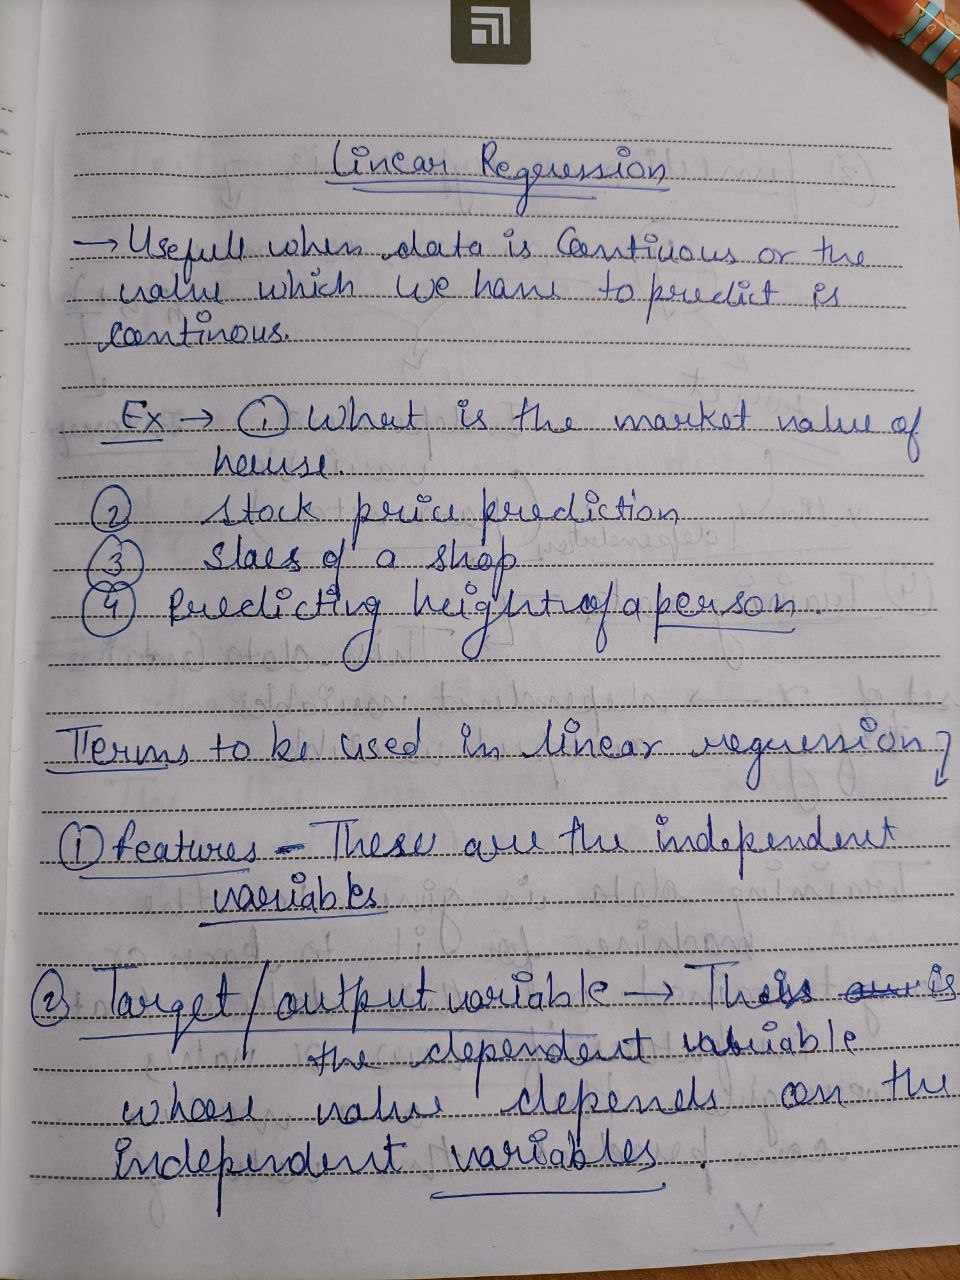 Linear Regression
→ Usefull when data is Contiuous or the
value which we have to predict is
continous.
Ex → ① What is the market value of
house.
② stock price prediction
③ Slaes of a shop
④ Predicting height of a person.
Terms to be used in linear regression
① features - These are the independent
variables
② Target/output variable → This is
the dependent variable
whose value depends on the
independent variables.